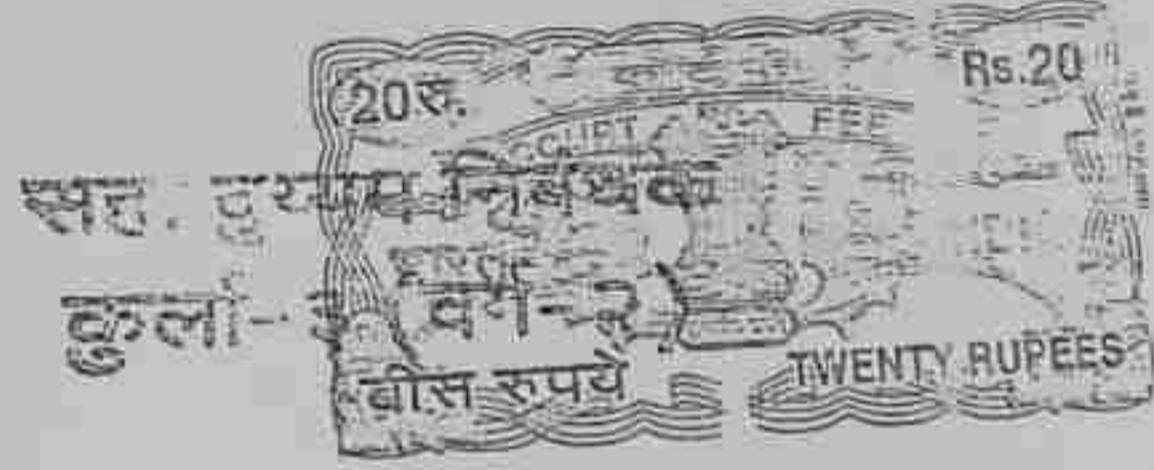 20रु. Rs.20
COURT FEE
सह. दुय्यम निबंधक
कुर्ला-३ वर्ग-२
बीस रुपये TWENTY RUPEES